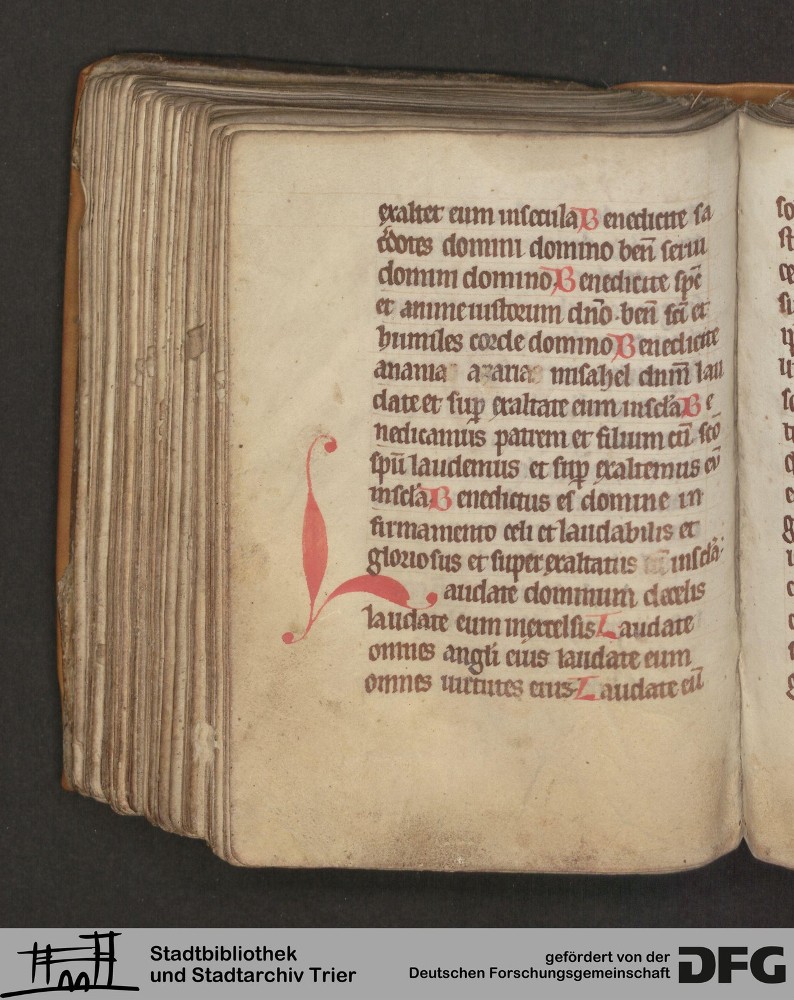 exaltet eum insecula Benedicite sa
cẻdotes domini domino ben̄ serui
domini domino Benedicite sp̄c
et anime iustorum dn̄o ben̄ sc̄i et
humiles corde domino Benedicite
anania azaria misahel dnm̄ lau
date et sup̱ exaltate eum inscl̄a Be
nedicamus patrem et filium cū sc̄o
sp̄u laudemus et sup̱ exaltemus eū
inscl̄a Benedictus es domine in
firmamento celi et laudabilis et
gloriosus et superexaltatus inscl̄a
Laudate dominum decelis
laudate eum inexcelsis Laudate
omnes angl̄i eius laudate eum
omnes uirtutes eius Laudate eū
Stadtbibliothek
und Stadtarchiv Trier
gefördert von der
Deutschen Forschungsgemeinschaft
DFG